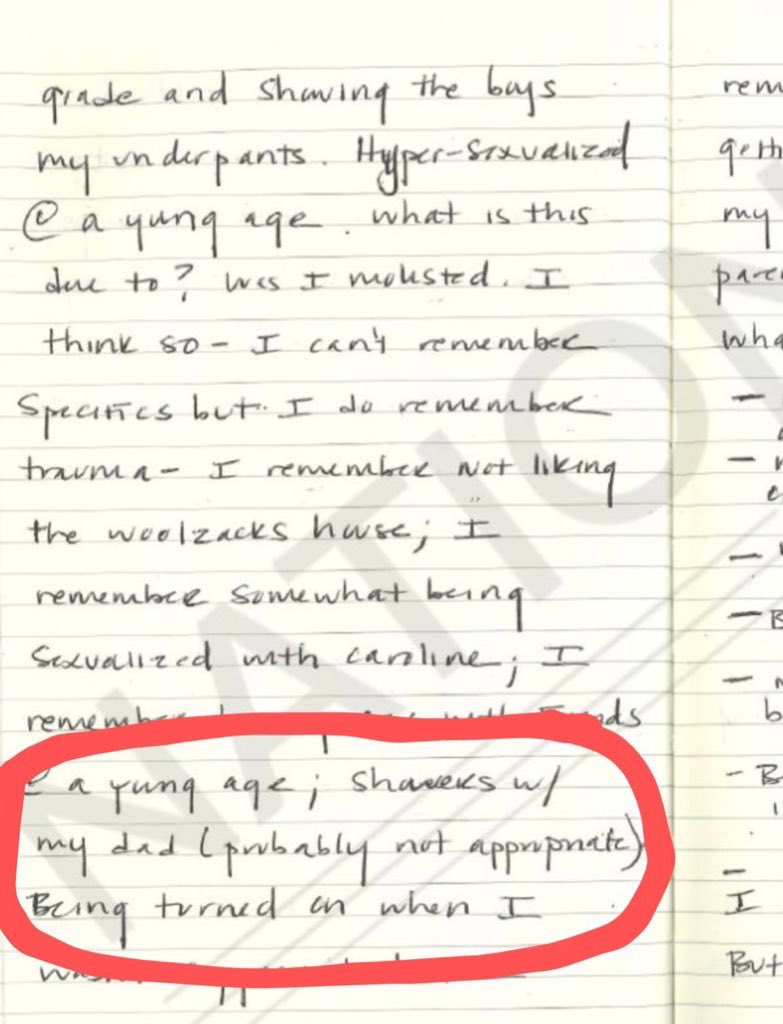 grade and showing the boys
my underpants. Hyper-sexualized
@ a yung age. what is this
due to? Was I molested. I
think so - I can't remember
specifics but I do remember
trauma - I remember not liking
the woolzacks house; I
remember somewhat being
sexualized with caroline; I
@ a yung age; showers w/
my dad (probably not appropriate)
Being turned on when I
rem
my
pare
wha
I
But
NATION